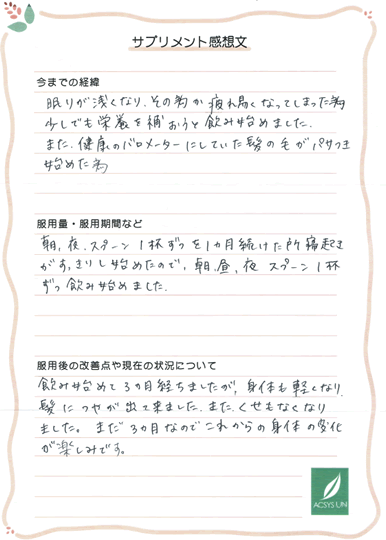 サプリメント感想文
今までの経緯
眠りが浅くなり、その為か疲れ易くなってしまった為
少しでも栄養を補おうと飲み始めました。
また、健康のバロメーターにしていた髪の毛がパサつき
始めた為
服用量・服用期間など
朝、夜、スプーン1杯ずつを1カ月続けた所寝起き
がすっきりし始めたので、朝、昼、夜 スプーン1杯
ずつ飲み始めました。
服用後の改善点や現在の状況について
飲み始めて3カ月経ちましたが、身体も軽くなり、
髪につやが出て来ました。また、くせもなくなり
ました。まだ3カ月なのでこれからの身体の変化
が楽しみです。
ACSYS UN